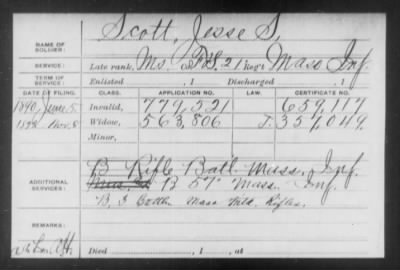 Scott, Jesse S.
NAME OF SOLDIER:
SERVICE: Late rank, Ms. F.S. 21 Reg't Mass Inf.
TERM OF SERVICE: Enlisted , 1 Discharged , 1
DATE OF FILING. CLASS. APPLICATION NO. LAW. CERTIFICATE NO.
1890, June 5 Invalid, 779,521 659,117
1893 Nov. 8 Widow, 563,806 J. 351,049
Minor,
B Rifle Batt. Mass. Inf.
ADDITIONAL SERVICES: B 57" Mass. Inf.
B. 3 Mass Rifles.
REMARKS:
Died , 1 , at